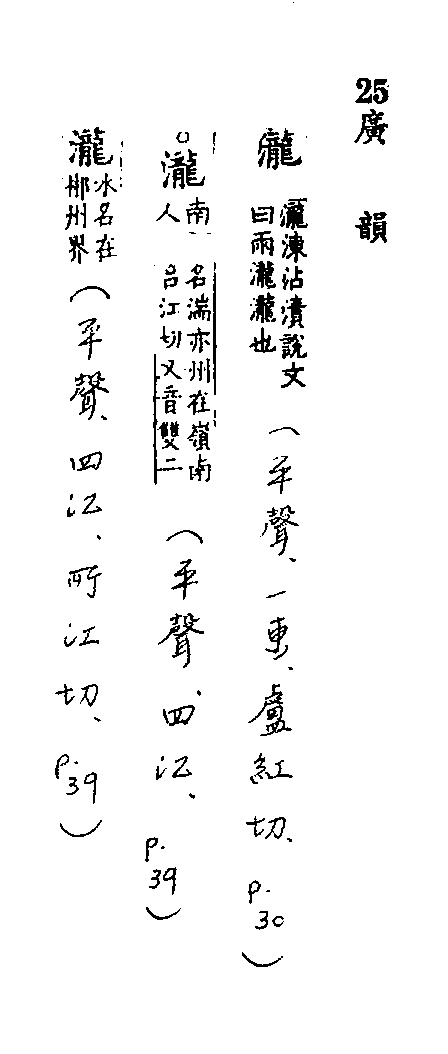 25廣韻
瀧 瀧涷沾漬說文
曰雨瀧瀧也
(平聲、一東、盧紅切、p.30)
瀧 南
人
名湍亦州在嶺南
呂江切又音雙二
(平聲、四江、p.39)
瀧 水名在
郴州界
(平聲、四江、所江切、p.39)